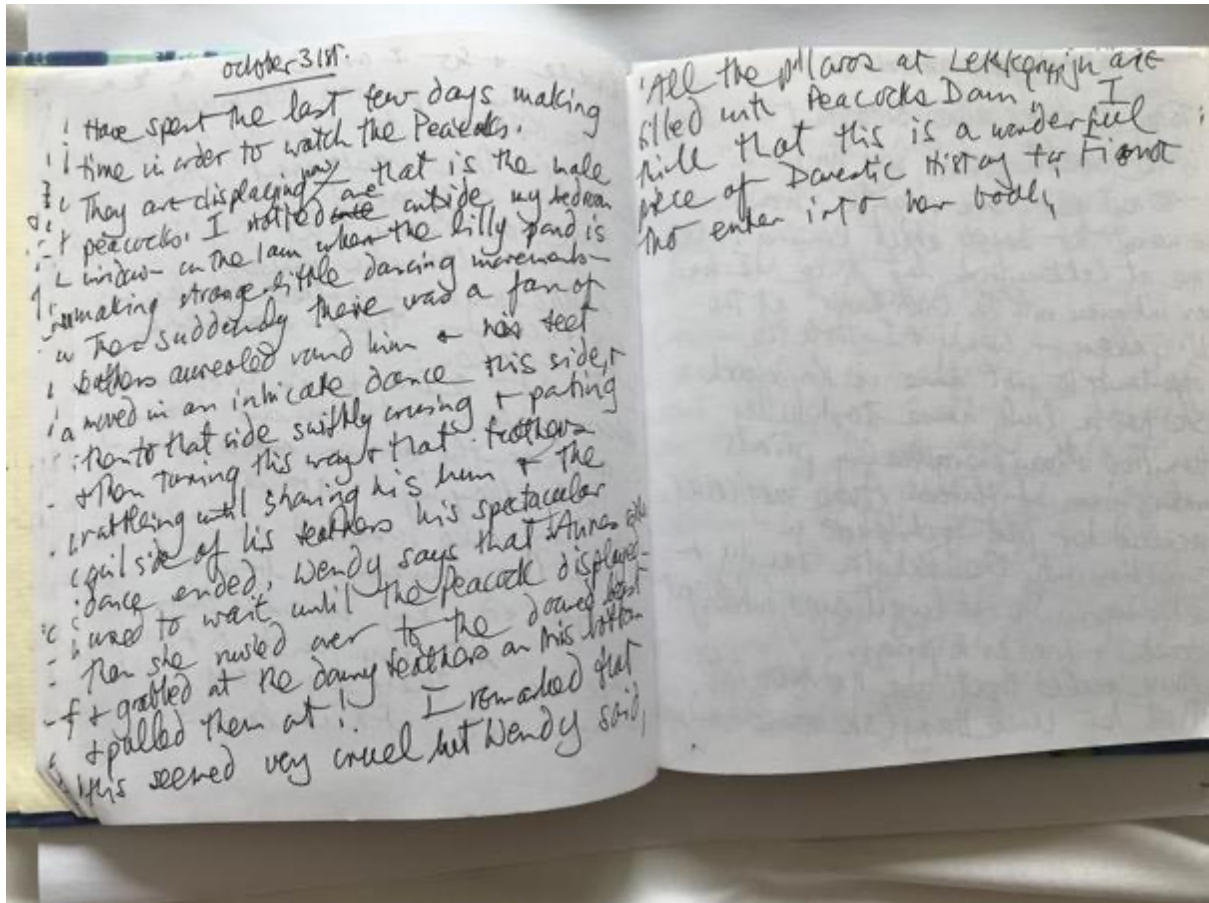 October 31st.
I Have spent the last few days making
time in order to watch the Peacocks.
They are displaying now that is the male
peacocks. I noticed one outside my bedroom
window on the lawn where the lilly pond is
making strange little dancing movements
Then suddenly there was a fan of
feathers aureoled round him & his feet
moved in an intricate dance this side, &
then to that side swiftly crossing & parting
& then turning this way & that feathers
rattleing until shaking his bum & the
quil side of his feathers his spectacular
dance ended. Wendy says that Aunt
used to wait until the Peacock displayed
Then she rushed over to the
& grabbed at the downy feathers on his bottom
& pulled them out! I remarked that
this seemed very cruel but Wendy said,
'All the pillows at are
filled with Peacocks Down". I
think that this is a wonderful
piece of Domestic History for
to enter into her book,